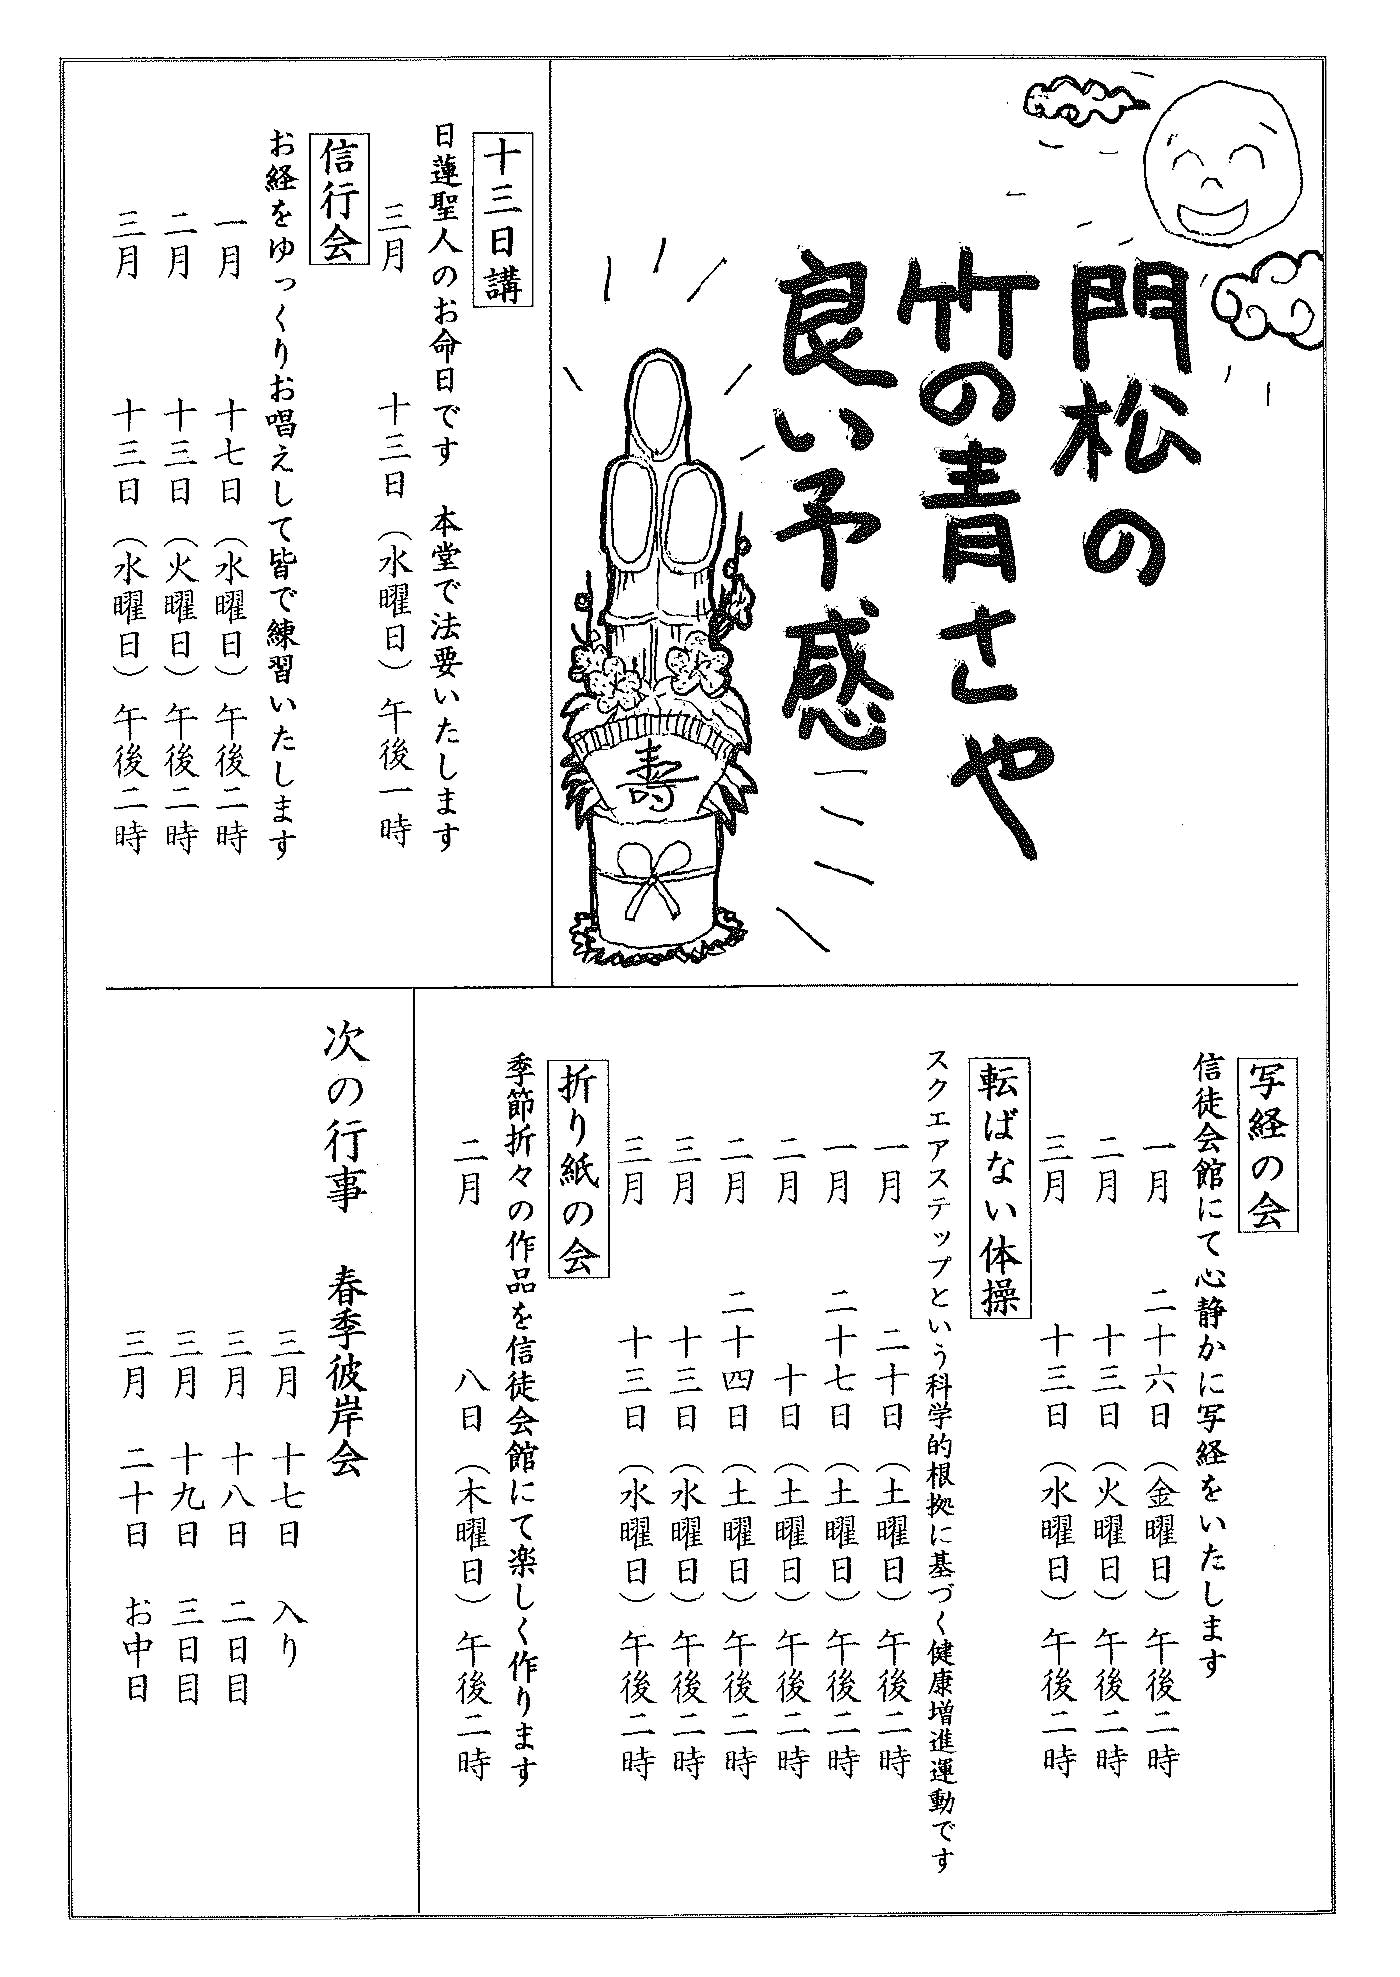 門松の
竹の青さや
良い予感
寿
十三日講
日蓮聖人のお命日です　本堂で法要いたします
三月　十三日（水曜日）午後一時
信行会
お経をゆっくりお唱えして皆で練習いたします
一月　十七日（水曜日）午後二時
二月　十三日（火曜日）午後二時
三月　十三日（水曜日）午後二時
写経の会
信徒会館にて心静かに写経をいたします
一月　二十六日（金曜日）午後二時
二月　十三日（火曜日）午後二時
三月　十三日（水曜日）午後二時
転ばない体操
スクエアステップという科学的根拠に基づく健康増進運動です
一月　二十日（土曜日）午後二時
一月　二十七日（土曜日）午後二時
二月　十日（土曜日）午後二時
二月　二十四日（土曜日）午後二時
三月　十三日（水曜日）午後二時
三月　十三日（水曜日）午後二時
折り紙の会
季節折々の作品を信徒会館にて楽しく作ります
二月　八日（木曜日）午後二時
次の行事　春季彼岸会
三月　十七日　入り
三月　十八日　二日目
三月　十九日　三日目
三月　二十日　お中日